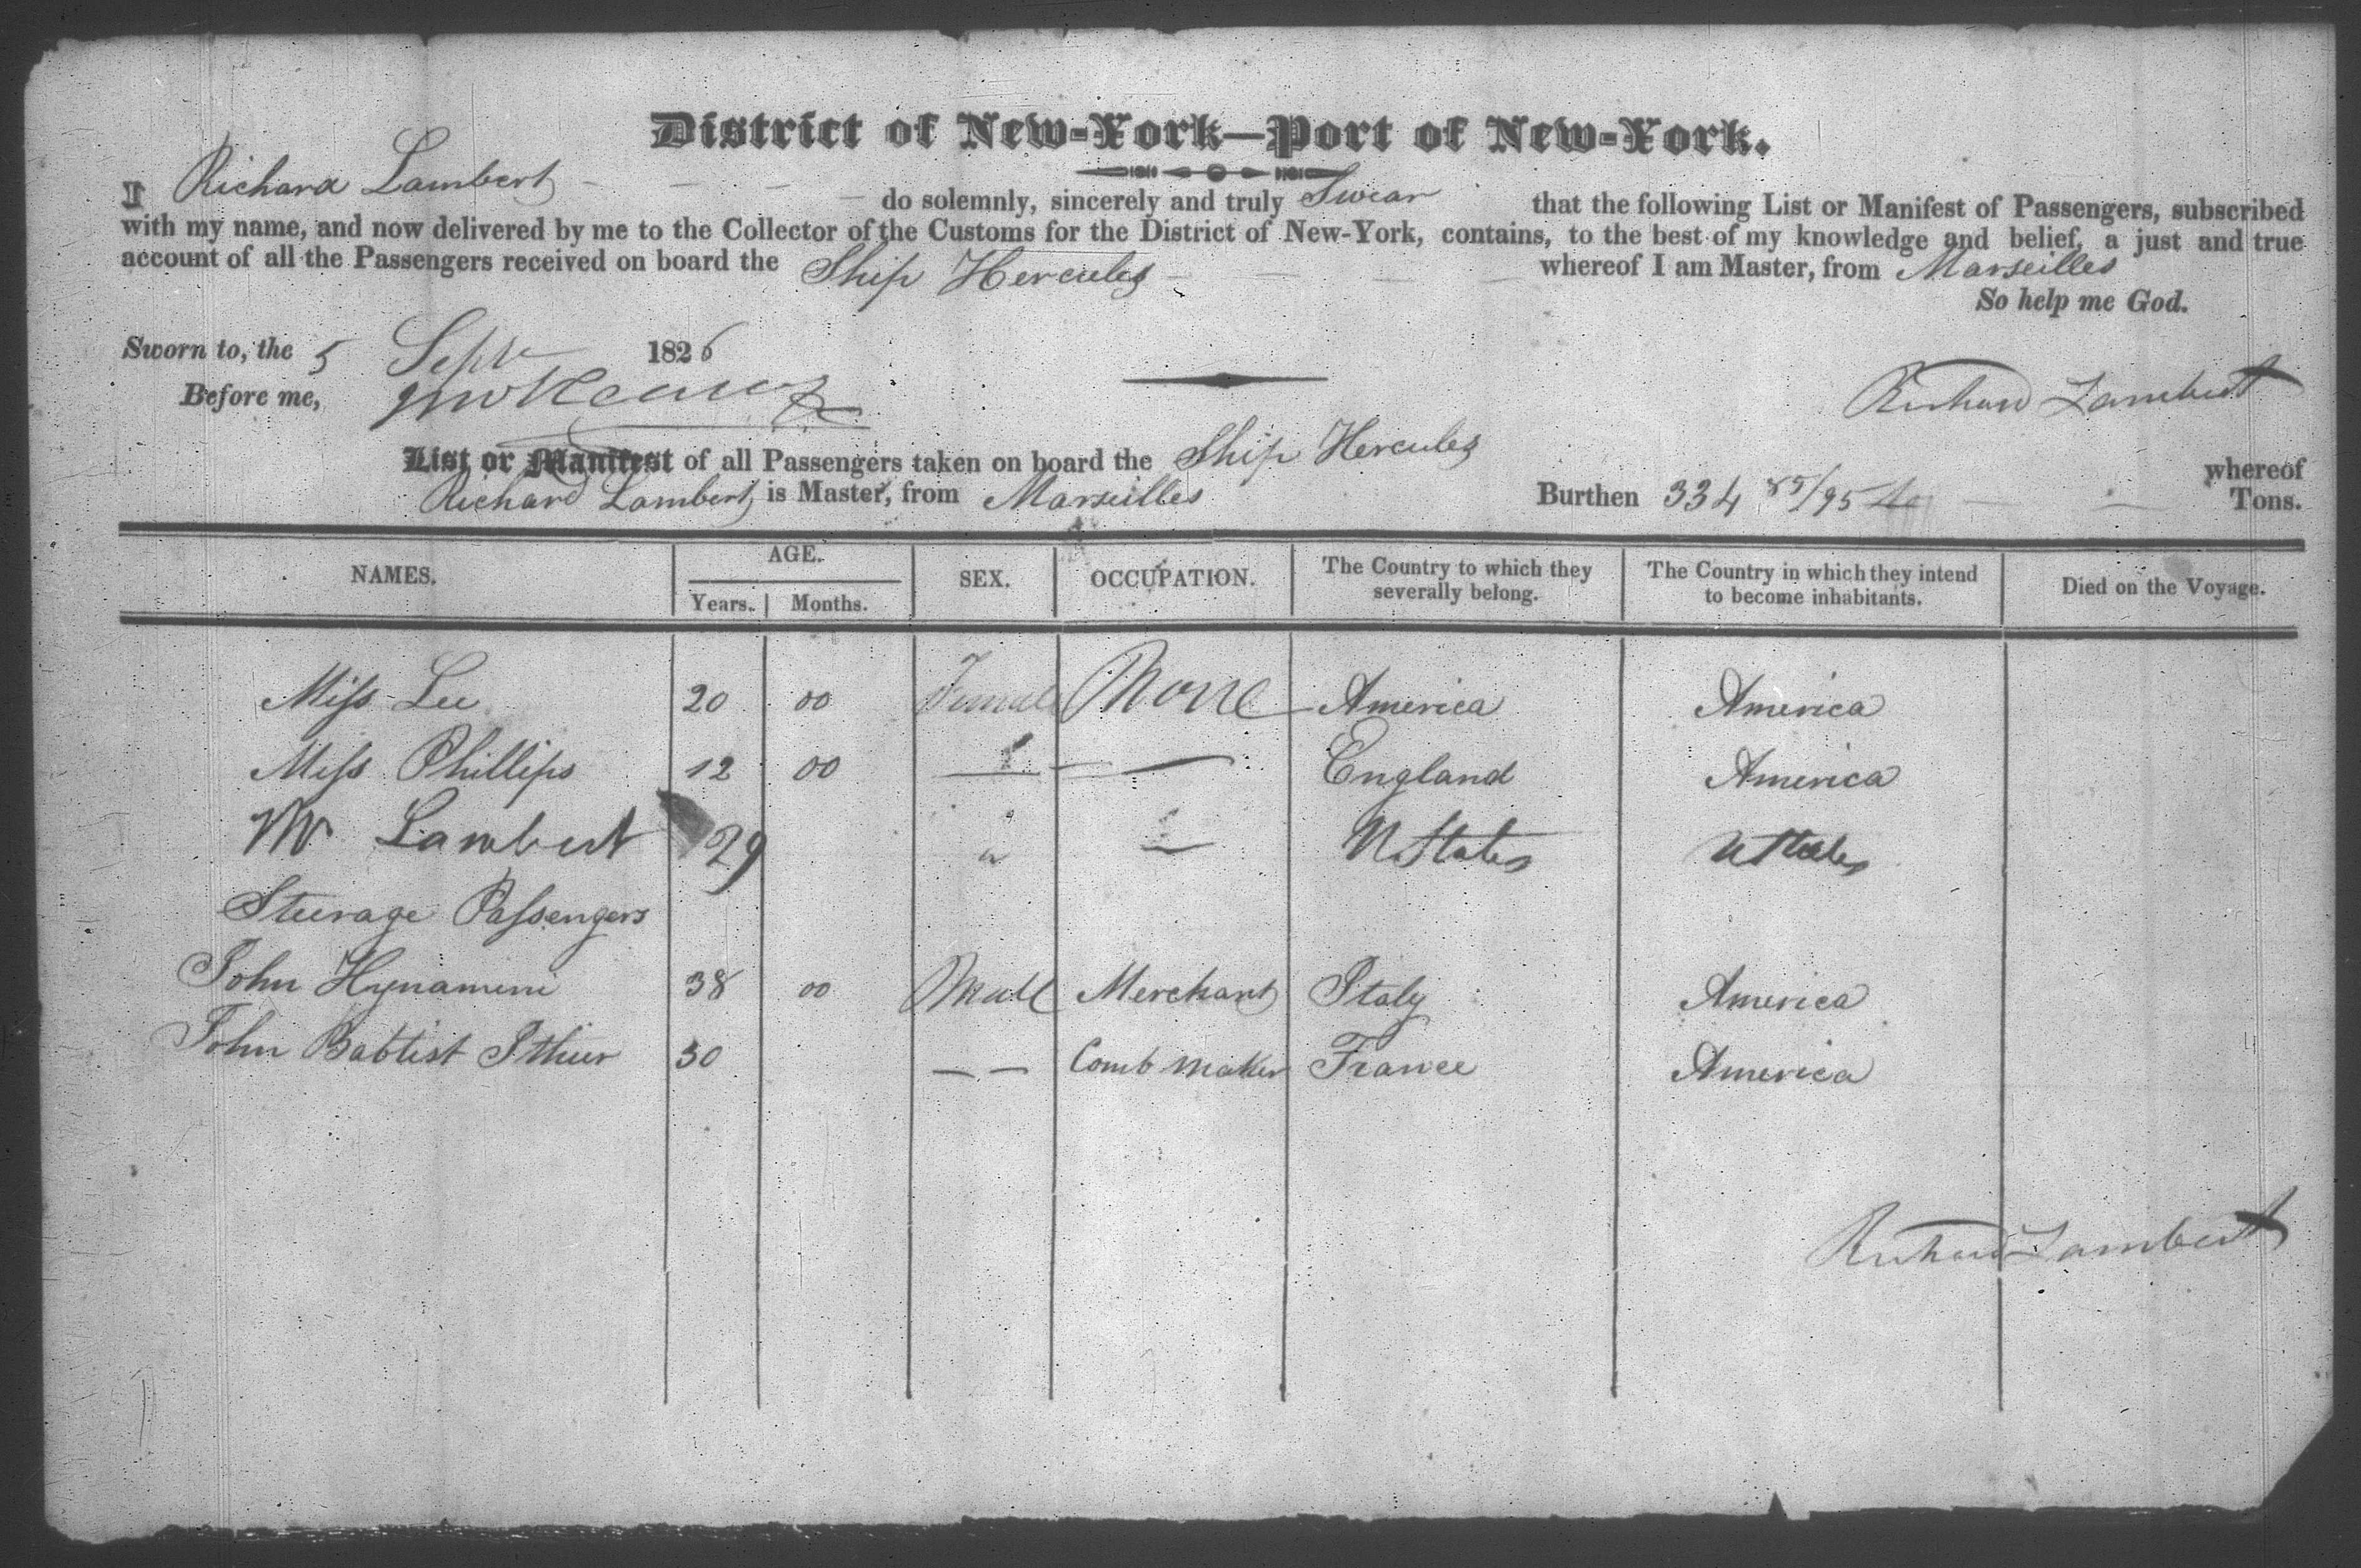 District of New-York—Port of New-York.
I Richard Lambert do solemnly, sincerely and truly Swear that the following List or Manifest of Passengers, subscribed
with my name, and now delivered by me to the Collector of the Customs for the District of New-York, contains, to the best of my knowledge and belief, a just and true
account of all the Passengers received on board the Ship Hercules whereof I am Master, from Marseilles
So help me God.
Sworn to, the 5 Sept 1826
Before me,
Richard Lambert
List or Manifest of all Passengers taken on board the Ship Hercules whereof
Richard Lambert is Master, from Marseilles Burthen 334 89/95 Tons.
NAMES. AGE. Years. Months. SEX. OCCUPATION. The Country to which they severally belong. The Country in which they intend to become inhabitants. Died on the Voyage.
Miss Lee 20 00 Female None America America
Miss Phillips 12 00 — — England America
Lambert 29 " — U States U States
Steerage Passengers
John 38 00 Male Merchant Italy America
John Babtist 30 — — Comb maker France America
Richard Lambert